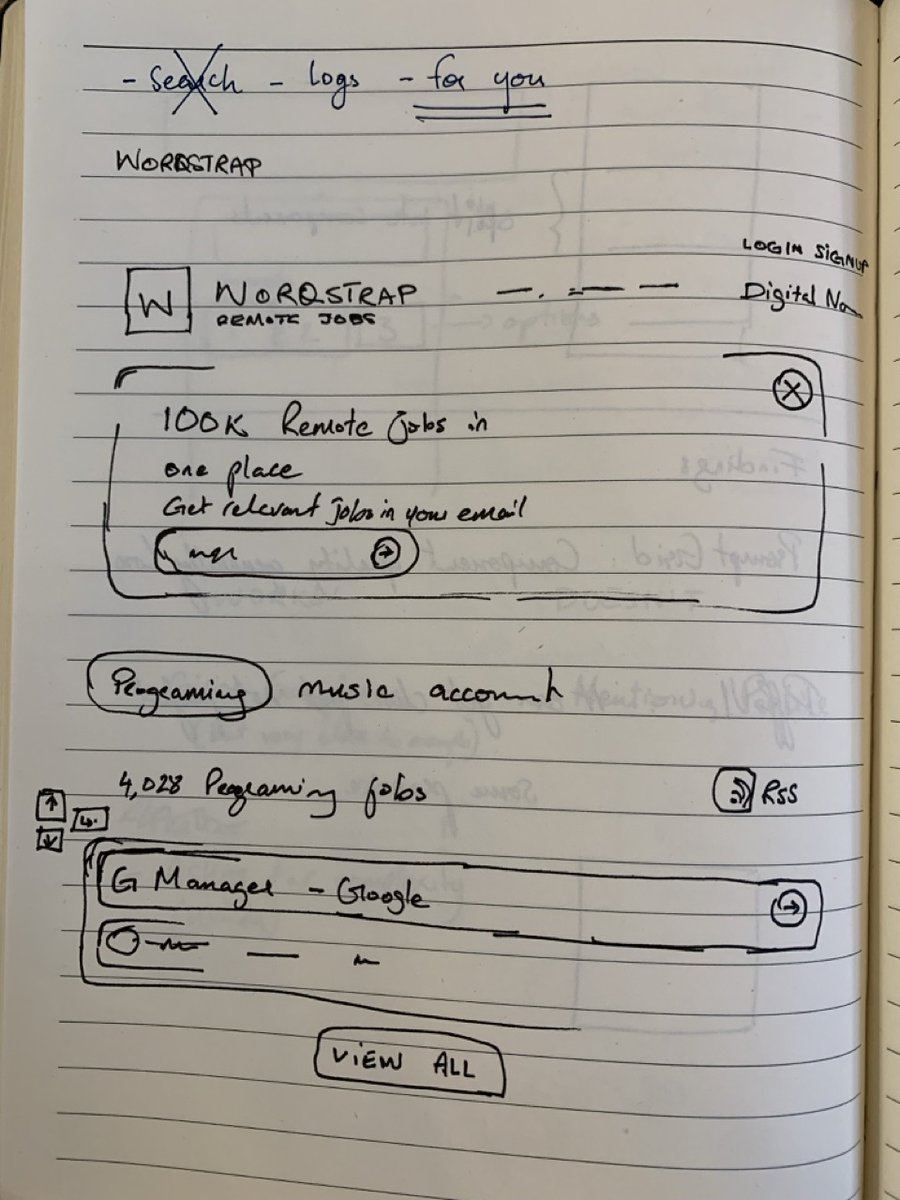 - Search - logs - for you
WORQSTRAP
LOGIN SIGNUP
W WORQSTRAP
REMOTE JOBS
Digital
100K Remote jobs in
one place
Get relevant jobs in your email
Programing music account
4,028 Programing jobs RSS
G Manager - Google
VIEW ALL